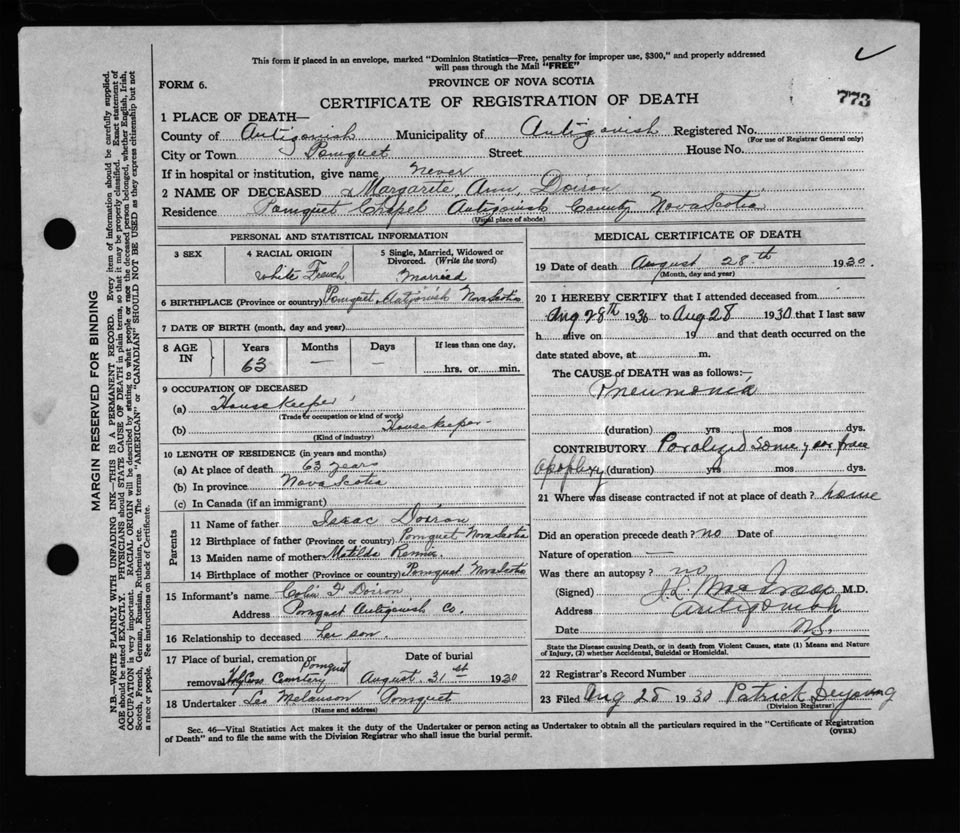 This form if placed in an envelope, marked "Dominion Statistics—Free, penalty for improper use, $300," and properly addressed
will pass through the Mail "FREE"
FORM 6.
PROVINCE OF NOVA SCOTIA
CERTIFICATE OF REGISTRATION OF DEATH
773
1 PLACE OF DEATH—
County of Antigonish Municipality of Antigonish Registered No.
(For use of Registrar General only)
City or Town Pomquet Street House No.
If in hospital or institution, give name Never
2 NAME OF DECEASED Margarite Ann Doiron
Residence Pomquet Chapel Antigonish County Nova Scotia
(Usual place of abode)
PERSONAL AND STATISTICAL INFORMATION
3 SEX 4 RACIAL ORIGIN 5 Single, Married, Widowed or Divorced. (Write the word)
White French Married
6 BIRTHPLACE (Province or country) Pomquet Antigonish Nova Scotia
7 DATE OF BIRTH (month, day and year)
8 AGE IN Years Months Days If less than one day,
63 — hrs. or min.
9 OCCUPATION OF DECEASED
(a) House Keeper
(Trade or occupation or kind of work)
(b) Housekeeper
(Kind of industry)
10 LENGTH OF RESIDENCE (in years and months)
(a) At place of death 63 years
(b) In province Nova Scotia
(c) In Canada (if an immigrant)
Parents
11 Name of father Isaac Doiron
12 Birthplace of father (Province or country) Pomquet Nova Scotia
13 Maiden name of mother Matilda
14 Birthplace of mother (Province or country) Pomquet Nova Scotia
15 Informant's name Colin F Doiron
Address Pomquet Antigonish Co.
16 Relationship to deceased her son
17 Place of burial, cremation or removal Pomquet Holy Cross Cemetery
Date of burial August 31st 1930
18 Undertaker Leo Melanson Pomquet
(Name and address)
MEDICAL CERTIFICATE OF DEATH
19 Date of death August 28th 1930.
(Month, day and year)
20 I HEREBY CERTIFY that I attended deceased from
Aug 28th 1930 to Aug 28 1930 that I last saw
h alive on 19 and that death occurred on the
date stated above, at m.
The CAUSE of DEATH was as follows:—
Pneumonia
(duration) yrs mos dys.
CONTRIBUTORY Paralyzed some year from
apoplexy (duration) yrs mos dys.
21 Where was disease contracted if not at place of death? home
Did an operation precede death? no Date of
Nature of operation —
Was there an autopsy? no
(Signed) J. L. M.D.
Address Antigonish
Date N.S.
State the Disease causing Death, or in death from Violent Causes, state (1) Means and Nature
of Injury, (2) whether Accidental, Suicidal or Homicidal.
22 Registrar's Record Number
23 Filed Aug 28 1930 Patrick Deyoung
(Division Registrar)
Sec. 46—Vital Statistics Act makes it the duty of the Undertaker or person acting as Undertaker to obtain all the particulars required in the "Certificate of Registration
of Death" and to file the same with the Division Registrar who shall issue the burial permit.
(OVER)
MARGIN RESERVED FOR BINDING
N.B.—WRITE PLAINLY WITH UNFADING INK—THIS IS A PERMANENT RECORD. Every item of information should be carefully supplied.
AGE should be stated EXACTLY. PHYSICIANS should STATE CAUSE OF DEATH in plain terms, so that it may be properly classified. Exact statement of
OCCUPATION is very important. RACIAL ORIGIN will be described by stating to what people or race the deceased person belonged, whether English, Irish,
Scotch, French, German, Russian, Ruthenian, etc. The terms "AMERICAN" or "CANADIAN" SHOULD NOT BE USED as they express citizenship but not
a race or people. See instructions on back of Certificate.